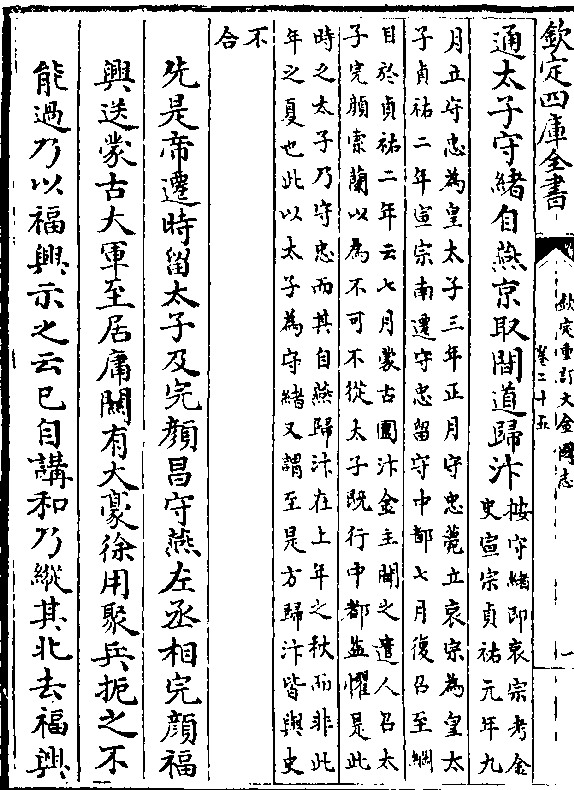 欽定四庫全書
欽定重訂大金國志
卷二十五
一
通太子守緒自燕京取間道歸汴按守緒即哀宗考金
史宣宗貞祐元年九
月立守忠為皇太子三年正月守忠薨立哀宗為皇太
子貞祐二年宣宗南遷守忠留守中都七月復召至綱
目於貞祐二年云七月蒙古圍汴金主聞之遣人召太
子完顏素蘭以為不可不從太子既行中都益懼是此
時之太子乃守忠而其自燕歸汴在上年之秋而非此
年之夏也此以太子為守緒又謂至是方歸汴皆與史
不
合
先是帝遷時留太子及完顏昌守燕左丞相完顏福
興送蒙古大軍至居庸關有大豪徐用聚兵扼之不
能過乃以福興示之云已自講和乃縱其北去福興